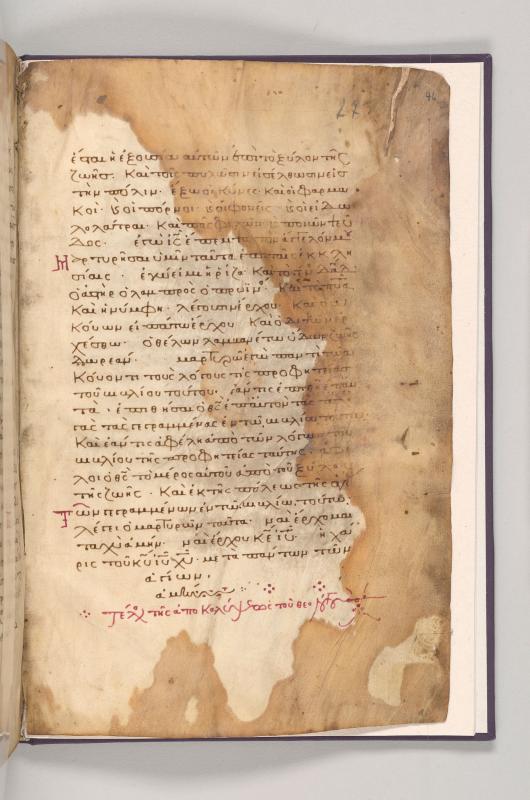 ἔσται ἡ ἐξουσία αὐτῶν ἐπὶ τὸ ξύλον τῆς
ζωῆς. Καὶ τοῖς πυλῶσιν εἰσέλθωσιν εἰς
τὴν πόλιν. ἔξω οἱ κύνες. καὶ οἱ φαρμα
κοὶ. καὶ οἱ πόρνοι. καὶ οἱ φονεῖς καὶ οἱ εἰδω
λολάτραι. Καὶ πᾶς φιλῶν ποιῶν ψεῦ
δος. ἐγὼ ις ἔπεμψα τὸν ἄγγελόν μου
Μαρτυρῆσαι ὑμῖν ταῦτα ἐπὶ ταῖς ἐκκλη
σίαις. ἐγώ εἰμι ἡ ῥίζα καὶ τὸ γένος δαδ
ὁ ἀστὴρ ὁ λαμπρὸς ὁ πρωϊνός. Καὶ τὸ πνα
Καὶ ἡ νύμφη. λέγουσιν ἔρχου. Καὶ ὁ ἀ
κούων εἰπάτω ἔρχου. Καὶ ὁ διψῶν ἐρ
χέσθω. ὁ θέλων λαμβανέτω ὕδωρ ζωῆς
δωρεάν. μαρτυρῶ ἐγὼ παντὶ τῷ ἀ
κούοντι τοὺς λόγους τῆς προφητείας
τοῦ βιβλίου τούτου. ἐάν τις ἐπιθῇ ἐπ αὐ
τὰ. ἐπιθήσαι ὁ θς ἐπ αὐτὸν τὰς πλη
γὰς τὰς γεγραμμένας ἐν τῷ βιβλίω τούτω
Καὶ ἐάν τις ἀφέλη ἀπὸ τῶν λόγων τοῦ
βιβλίου τῆς προφητείας ταύτης. ἀφέ
λοι ὁ θς τὸ μέρος αὐτοῦ ἀπὸ τοῦ ξύλου
τῆς ζωῆς. Καὶ ἐκ τῆς πόλεως τῆς ἁγί
Τῶν γεγραμμένων ἐν τῷ βιβλίω τούτω
λέγει ὁ μαρτυρῶν ταῦτα. ναὶ ἔρχομαι
ταχὺ ἀμήν. ναὶ ἔρχου κε ιυ. ἡ χά
ρις τοῦ κυ ιυ χυ. μετὰ πάντων τῶν
ἁγίων.
ἀμήν
τέλος τῆς ἀποκαλύψεως τοῦ θεολόγου